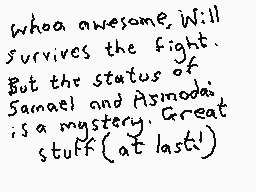 whoa awesome, Will
survives the fight.
But the status of
Samael and Asmodai
is a mystery. Great
stuff (at last!)